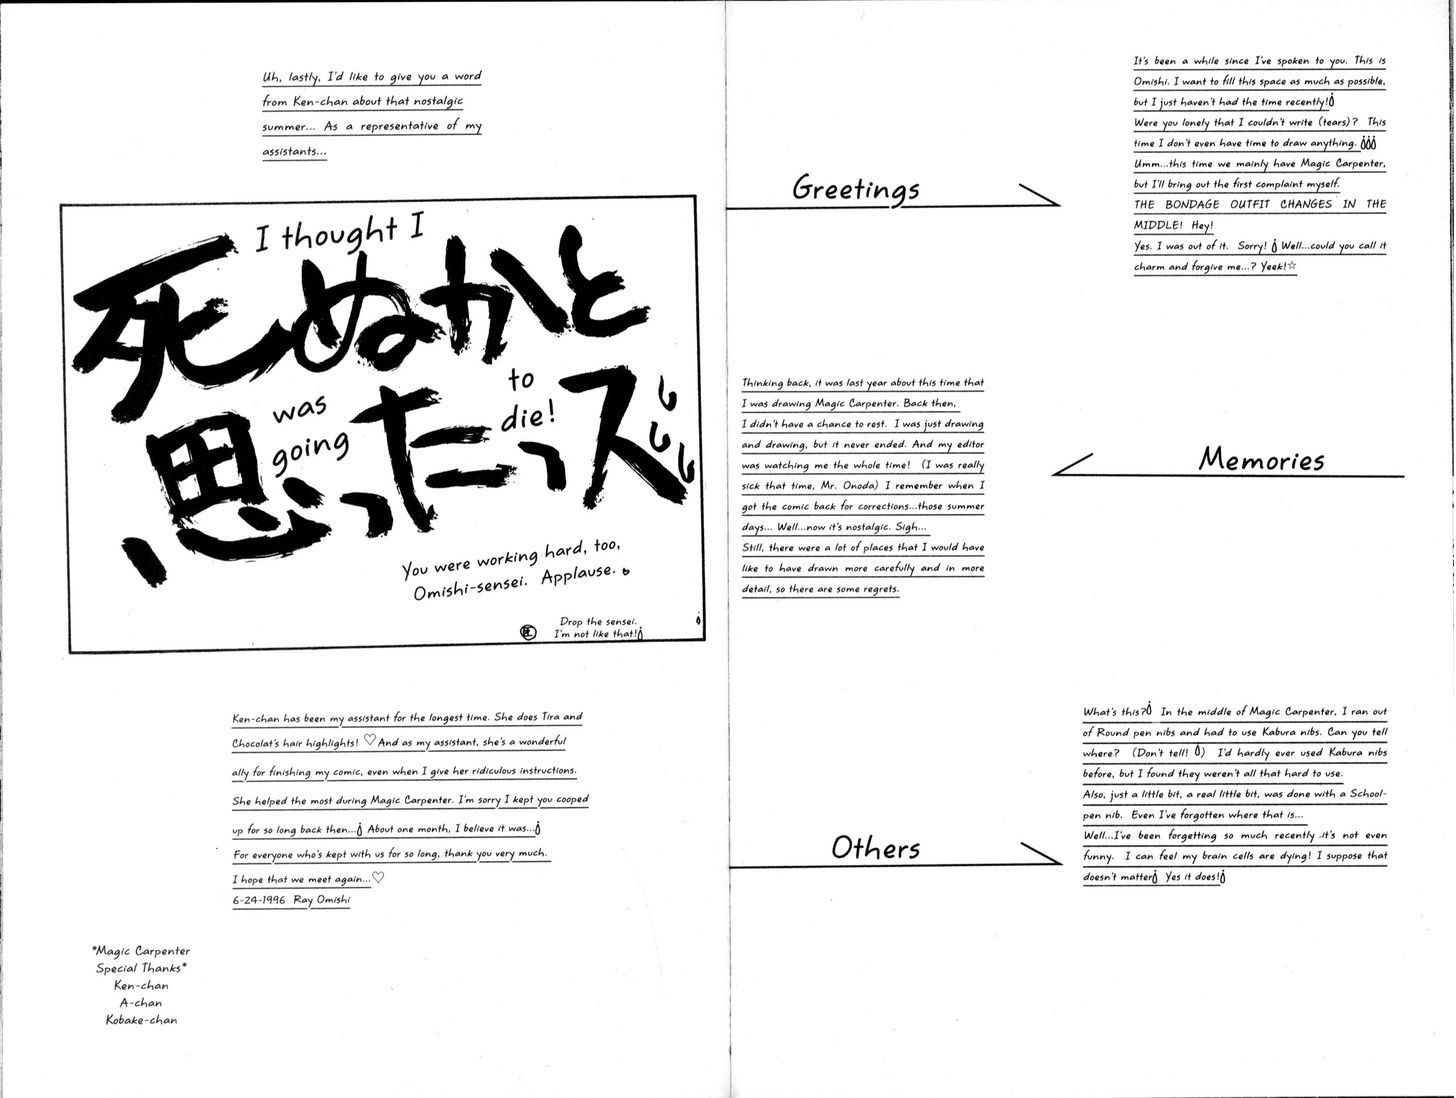 Greetings
It's been a while since I've spoken to you. This is
Omishi. I want to fill this space as much as possible,
but I just haven't had the time recently!
Were you lonely that I couldn't write (tears)? This
time I don't even have time to draw anything.
Umm...this time we mainly have Magic Carpenter,
but I'll bring out the first complaint myself.
THE BONDAGE OUTFIT CHANGES IN THE
MIDDLE! Hey!
Yes. I was out of it. Sorry! Well...could you call it
charm and forgive me...? Yeek!☆
Memories
Thinking back, it was last year about this time that
I was drawing Magic Carpenter. Back then,
I didn't have a chance to rest. I was just drawing
and drawing, but it never ended. And my editor
was watching me the whole time! (I was really
sick that time, Mr. Onoda) I remember when I
got the comic back for corrections...those summer
days... Well...now it's nostalgic. Sigh...
Still, there were a lot of places that I would have
like to have drawn more carefully and in more
detail, so there are some regrets.
Others
What's this? In the middle of Magic Carpenter, I ran out
of Round pen nibs and had to use Kabura nibs. Can you tell
where? (Don't tell!) I'd hardly ever used Kabura nibs
before, but I found they weren't all that hard to use.
Also, just a little bit, a real little bit, was done with a School-
pen nib. Even I've forgotten where that is...
Well...I've been forgetting so much recently it's not even
funny. I can feel my brain cells are dying! I suppose that
doesn't matter Yes it does!
Uh, lastly, I'd like to give you a word
from Ken-chan about that nostalgic
summer... As a representative of my
assistants...
I thought I
死ぬかと
was
going
to
die!
思ったっス
You were working hard, too,
Omishi-sensei. Applause.
Drop the sensei.
I'm not like that!
Ken-chan has been my assistant for the longest time. She does Tira and
Chocolat's hair highlights! ♡ And as my assistant, she's a wonderful
ally for finishing my comic, even when I give her ridiculous instructions.
She helped the most during Magic Carpenter. I'm sorry I kept you cooped
up for so long back then... About one month, I believe it was...
For everyone who's kept with us for so long, thank you very much.
I hope that we meet again...♡
6-24-1996 Ray Omishi
*Magic Carpenter
Special Thanks*
Ken-chan
A-chan
Kobake-chan